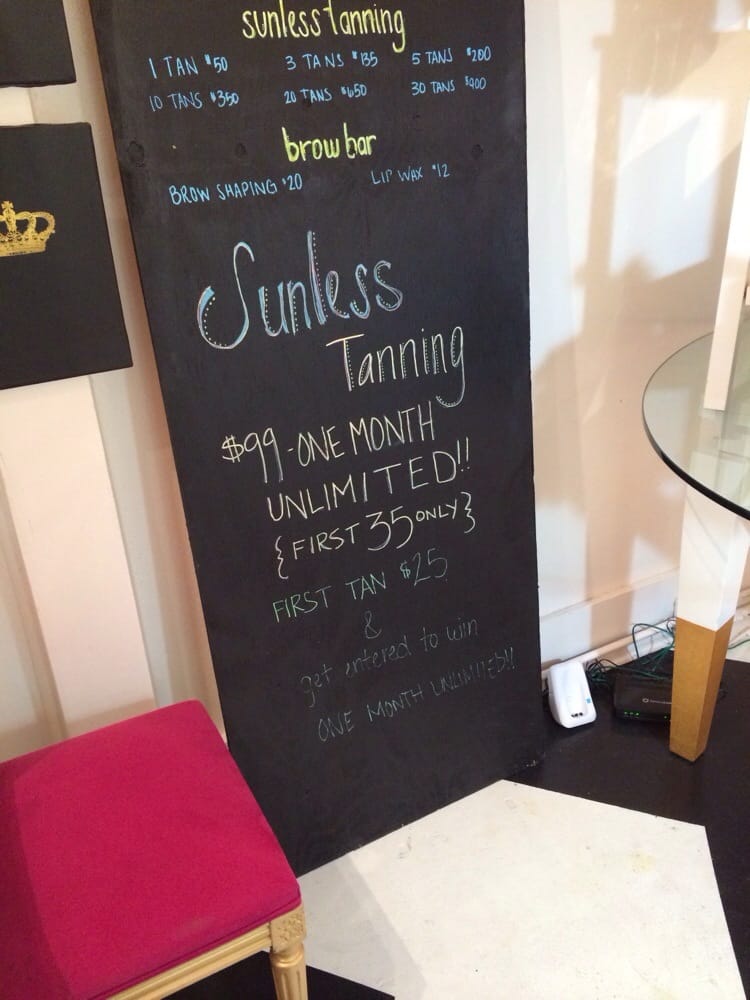 sunless tanning
1 TAN $50 3 TANS $135 5 TANS $200
10 TANS $350 20 TANS $650 30 TANS $900
brow bar
BROW SHAPING $20 LIP WAX $12
Sunless
Tanning
$99 - ONE MONTH
UNLIMITED!!
{FIRST 35 ONLY}
FIRST TAN $25
&
get entered to win
ONE MONTH UNLIMITED!!